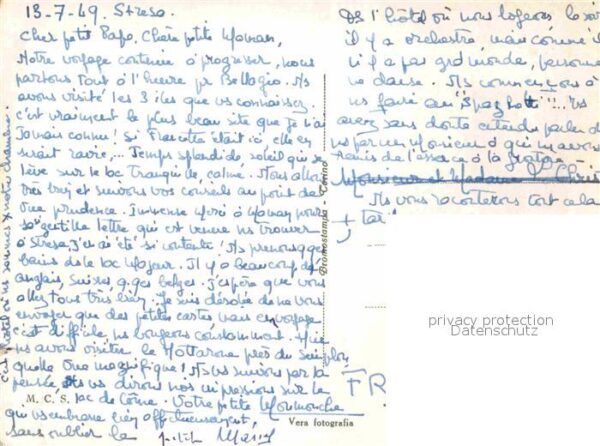 13-7-49. Stresa.
Cher petit Papa, Chère petite Maman,
Notre voyage continue à progresser, nous
partons tout à l'heure pr Bellagio. Ns
avons visité les 3 îles que vs connaissez.
c'est vraiment le plus beau site que j'ai
jamais connu! Si était ici, elle en
serait ravie,... Temps splendide, soleil qui se
lève sur le lac tranquille, calme. Nous allons
très bien et suivons vos conseils au point de
vue prudence. Immense merci à Maman pour
sa gentille lettre qui est venue ns trouver
à Stresa, j'en ai été si contente! Ns prenons qques
bains ds le lac Majeur. Il y a beaucoup d'
anglais, suisses, qques belges. J'espère que vous
allez tous très bien. Je suis désolée de ne vous
envoyer que des petites cartes mais en voyage
c'est difficile, ns bougeons constamment. Hier
ns avons visité le Mottarone près du Simplon,
quelle vue magnifique! Ns vs suivons par la
pensée, et vs dirons nos impressions sur le
M. C. S. lac de Côme. Votre petite
qui vs embrasse bien affectueusement,
sans oublier la
c'est l'hôtel où ns sommes x notre chambre.
Vera fotografia
Dromostampa - Como
Ds l'hôtel où nous logeons le soir
il y a orchestre, mais comme il
n'y a pas grd monde, personne
ne danse. Ns commençons à
ns faire au "Spaghetti"!!.. Vs
avez sans doute entendu parler de
ns par un Monsieur à qui
Monsieur et Madame
Ns vous raconterons tout cela
+ tard
FR
privacy protection
Datenschutz